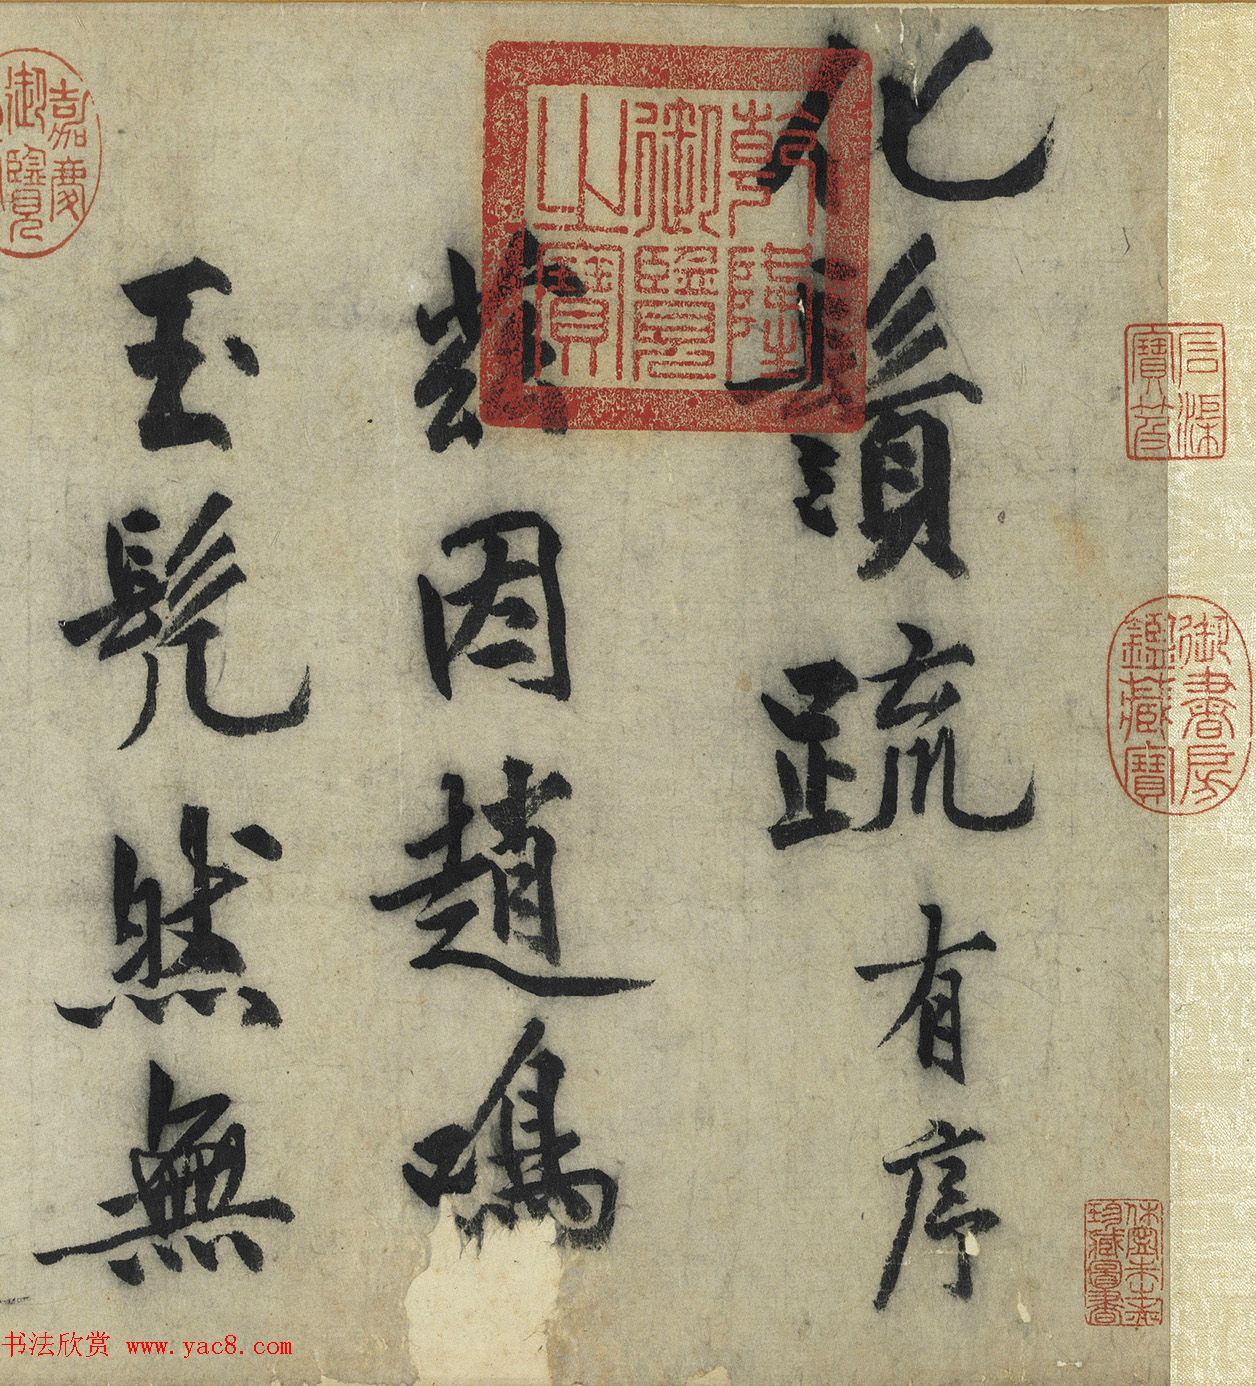 化鬚疏有序
兹因趙鳴
玉髠然無
乾隆
御覽
之寶
嘉慶
御覽
石渠
寶笈
御書房
鑑藏寶
珍藏圖書
书法欣赏 www.yac8.com